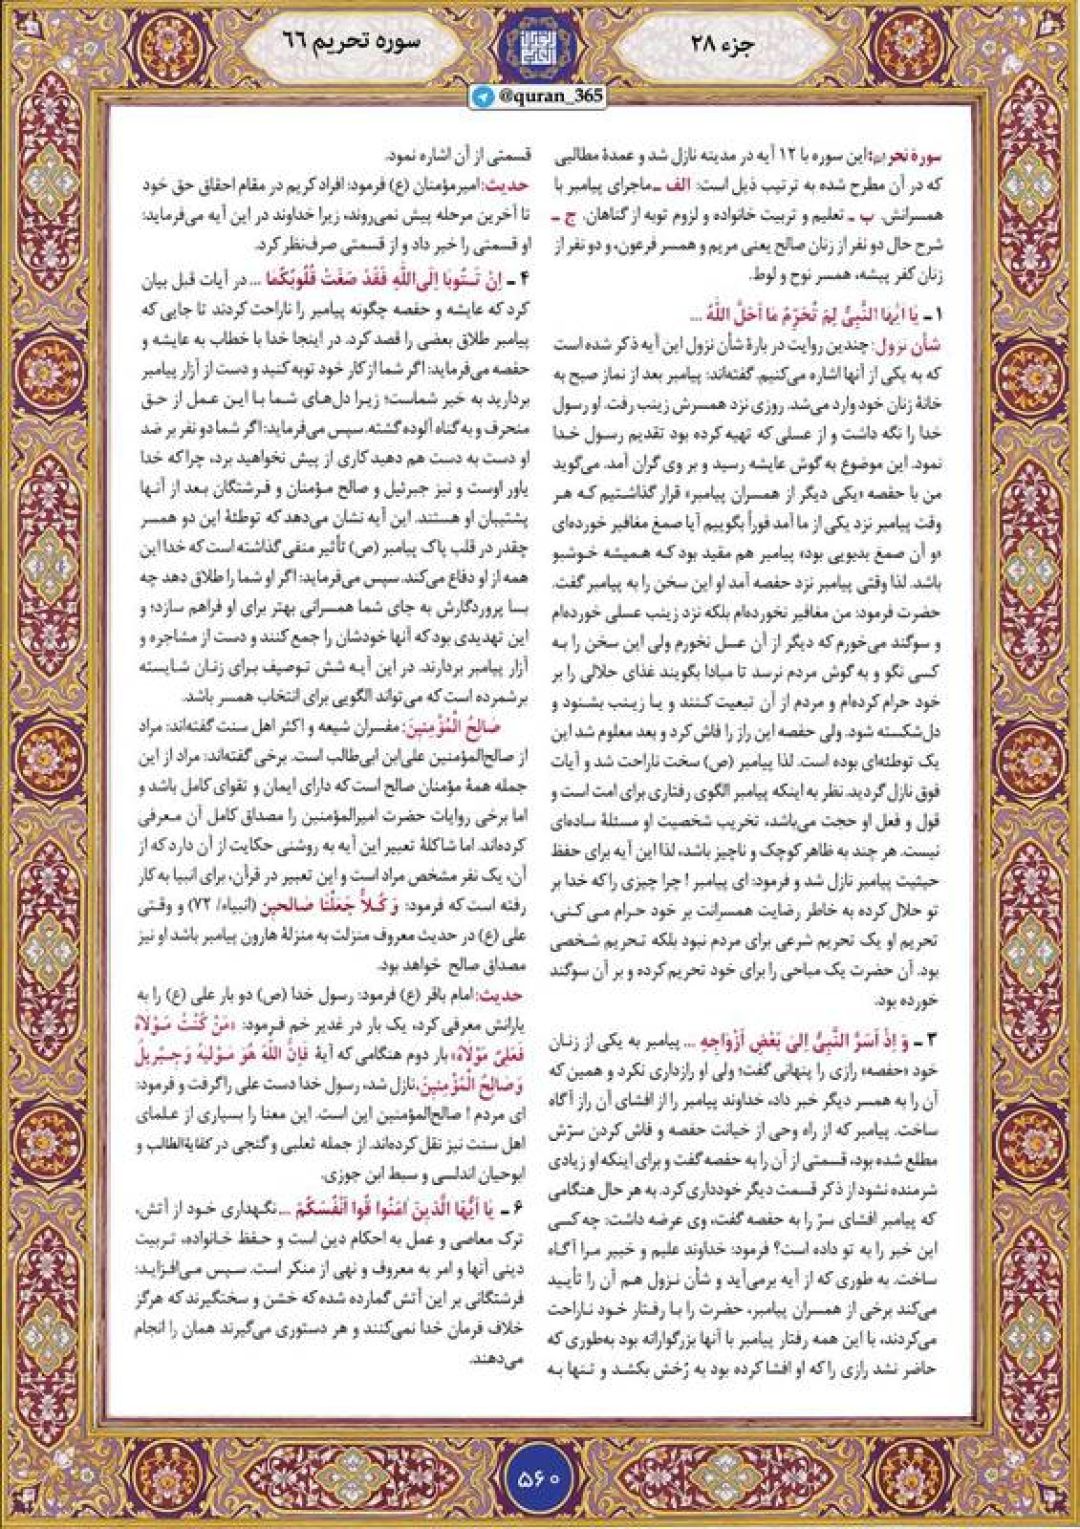 جزء ۲۸
سوره تحریم ۶۶
@quran_365
سورهٔ تحریم: این سوره با ۱۲ آیه در مدینه نازل شد و عمدهٔ مطالبی
که در آن مطرح شده به ترتیب ذیل است: الف ـ ماجرای پیامبر با
همسرانش. ب ـ تعلیم و تربیت خانواده و لزوم توبه از گناهان. ج ـ
شرح حال دو نفر از زنان صالح یعنی مریم و همسر فرعون، و دو نفر از
زنان کفر پیشه، همسر نوح و لوط.
۱ ـ یَا أَیُّهَا النَّبِیُّ لِمَ تُحَرِّمُ مَا أَحَلَّ اللَّهُ ...
شأن نزول: چندین روایت در بارهٔ شأن نزول این آیه ذکر شده است
که به یکی از آنها اشاره می‌کنیم. گفته‌اند: پیامبر بعد از نماز صبح به
خانهٔ زنان خود وارد می‌شد. روزی نزد همسرش زینب رفت. او رسول
خدا را نگه داشت و از عسلی که تهیه کرده بود تقدیم رسول خدا
نمود. این موضوع به گوش عایشه رسید و بر وی گران آمد. می‌گوید
من با حفصه «یکی دیگر از همسران پیامبر» قرار گذاشتیم که هر
وقت پیامبر نزد یکی از ما آمد فوراً بگوییم آیا صمغ مغافیر خورده‌ای
«و آن صمغ بدبویی بود» پیامبر هم مقید بود که همیشه خوشبو
باشد. لذا وقتی پیامبر نزد حفصه آمد او این سخن را به پیامبر گفت.
حضرت فرمود: من مغافیر نخورده‌ام بلکه نزد زینب عسلی خورده‌ام
و سوگند می‌خورم که دیگر از آن عسل نخورم ولی این سخن را به
کسی نگو و به گوش مردم نرسد تا مبادا بگویند غذای حلالی را بر
خود حرام کرده‌ام و مردم از آن تبعیت کنند و یا زینب بشنود و
دل‌شکسته شود. ولی حفصه این راز را فاش کرد و بعد معلوم شد این
یک توطئه‌ای بوده است. لذا پیامبر (ص) سخت ناراحت شد و آیات
فوق نازل گردید. نظر به اینکه پیامبر الگوی رفتاری برای امت است و
قول و فعل او حجت می‌باشد، تخریب شخصیت او مسئلهٔ ساده‌ای
نیست. هر چند به ظاهر کوچک و ناچیز باشد، لذا این آیه برای حفظ
حیثیت پیامبر نازل شد و فرمود: ای پیامبر! چرا چیزی را که خدا بر
تو حلال کرده به خاطر رضایت همسرانت بر خود حرام می کنی،
تحریم او یک تحریم شرعی برای مردم نبود بلکه تحریم شخصی
بود. آن حضرت یک مباحی را برای خود تحریم کرده و بر آن سوگند
خورده بود.
۳ ـ وَ إِذْ أَسَرَّ النَّبِیُّ إِلَی بَعْضِ أَزْوَاجِهِ ... پیامبر به یکی از زنان
خود «حفصه» رازی را پنهانی گفت؛ ولی او رازداری نکرد و همین که
آن را به همسر دیگر خبر داد، خداوند پیامبر را از افشای آن راز آگاه
ساخت. پیامبر که از راه وحی از خیانت حفصه و فاش کردن سرّش
مطلع شده بود، قسمتی از آن را به حفصه گفت و برای اینکه او زیادی
شرمنده نشود از ذکر قسمت دیگر خودداری کرد. به هر حال هنگامی
که پیامبر افشای سرّ را به حفصه گفت، وی عرضه داشت: چه کسی
این خبر را به تو داده است؟ فرمود: خداوند علیم و خبیر مرا آگاه
ساخت. به طوری که از آیه برمی‌آید و شأن نزول هم آن را تأیید
می‌کند برخی از همسران پیامبر، حضرت را با رفتار خود ناراحت
می‌کردند، با این همه رفتار پیامبر با آنها بزرگوارانه بود به‌طوری که
حاضر نشد رازی را که او افشا کرده بود به رُخش بکشد و تنها به
قسمتی از آن اشاره نمود.
حدیث: امیرمؤمنان (ع) فرمود: افراد کریم در مقام احقاق حق خود
تا آخرین مرحله پیش نمی‌روند، زیرا خداوند در این آیه می‌فرماید:
او قسمتی را خبر داد و از قسمتی صرف‌نظر کرد.
۴ ـ إِنْ تَتُوبَا إِلَی اللَّهِ فَقَدْ صَغَتْ قُلُوبُکُمَا ... در آیات قبل بیان
کرد که عایشه و حفصه چگونه پیامبر را ناراحت کردند تا جایی که
پیامبر طلاق بعضی را قصد کرد. در اینجا خدا با خطاب به عایشه و
حفصه می‌فرماید: اگر شما از کار خود توبه کنید و دست از آزار پیامبر
بردارید به خیر شماست؛ زیرا دل‌های شما با این عمل از حق
منحرف و به گناه آلوده گشته. سپس می‌فرماید: اگر شما دو نفر بر ضد
او دست به دست هم دهید کاری از پیش نخواهید برد، چرا که خدا
یاور اوست و نیز جبرئیل و صالح مؤمنان و فرشتگان بعد از آنها
پشتیبان او هستند. این آیه نشان می‌دهد که توطئهٔ این دو همسر
چقدر در قلب پاک پیامبر (ص) تأثیر منفی گذاشته است که خدا این
همه از او دفاع می‌کند. سپس می‌فرماید: اگر او شما را طلاق دهد چه
بسا پروردگارش به جای شما همسرانی بهتر برای او فراهم سازد؛ و
این تهدیدی بود که آنها خودشان را جمع کنند و دست از مشاجره و
آزار پیامبر بردارند. در این آیه شش توصیف برای زنان شایسته
برشمرده است که می‌تواند الگویی برای انتخاب همسر باشد.
صَالِحُ الْمُؤْمِنِینَ: مفسران شیعه و اکثر اهل سنت گفته‌اند: مراد
از صالح‌المؤمنین علی‌ابن ابی‌طالب است. برخی گفته‌اند: مراد از این
جمله همهٔ مؤمنان صالح است که دارای ایمان و تقوای کامل باشد و
اما برخی روایات حضرت امیرالمؤمنین را مصداق کامل آن معرفی
کرده‌اند. اما شاکلهٔ تعبیر این آیه به روشنی حکایت از آن دارد که از
آن، یک نفر مشخص مراد است و این تعبیر در قرآن، برای انبیا به کار
رفته است که فرمود: وَ کُلّاً جَعَلْنَا صَالِحِین (انبیاء/ ۷۲) و وقتی
علی (ع) در حدیث معروف منزلت به منزلهٔ هارون پیامبر باشد او نیز
مصداق صالح خواهد بود.
حدیث: امام باقر (ع) فرمود: رسول خدا (ص) دو بار علی (ع) را به
یارانش معرفی کرد، یک بار در غدیر خم فرمود: «مَنْ کُنْتُ مَوْلَاهُ
فَعَلِیٌّ مَوْلَاهُ» بار دوم هنگامی که آیهٔ فَإِنَّ اللَّهَ هُوَ مَوْلَیهُ وَجِبْرِیلُ
وَصَالِحُ الْمُؤْمِنِینَ، نازل شد، رسول خدا دست علی را گرفت و فرمود:
ای مردم! صالح‌المؤمنین این است. این معنا را بسیاری از علمای
اهل سنت نیز نقل کرده‌اند. از جمله ثعلبی و گنجی در کفایةالطالب و
ابوحیان اندلسی و سبط ابن جوزی.
۶ ـ یَا أَیُّهَا الَّذِینَ آمَنُوا قُوا أَنْفُسَکُمْ ... نگهداری خود از آتش،
ترک معاصی و عمل به احکام دین است و حفظ خانواده، تربیت
دینی آنها و امر به معروف و نهی از منکر است. سپس می‌افزاید:
فرشتگانی بر این آتش گمارده شده که خشن و سختگیرند که هرگز
خلاف فرمان خدا نمی‌کنند و هر دستوری می‌گیرند همان را انجام
می‌دهند.
۵۶۰